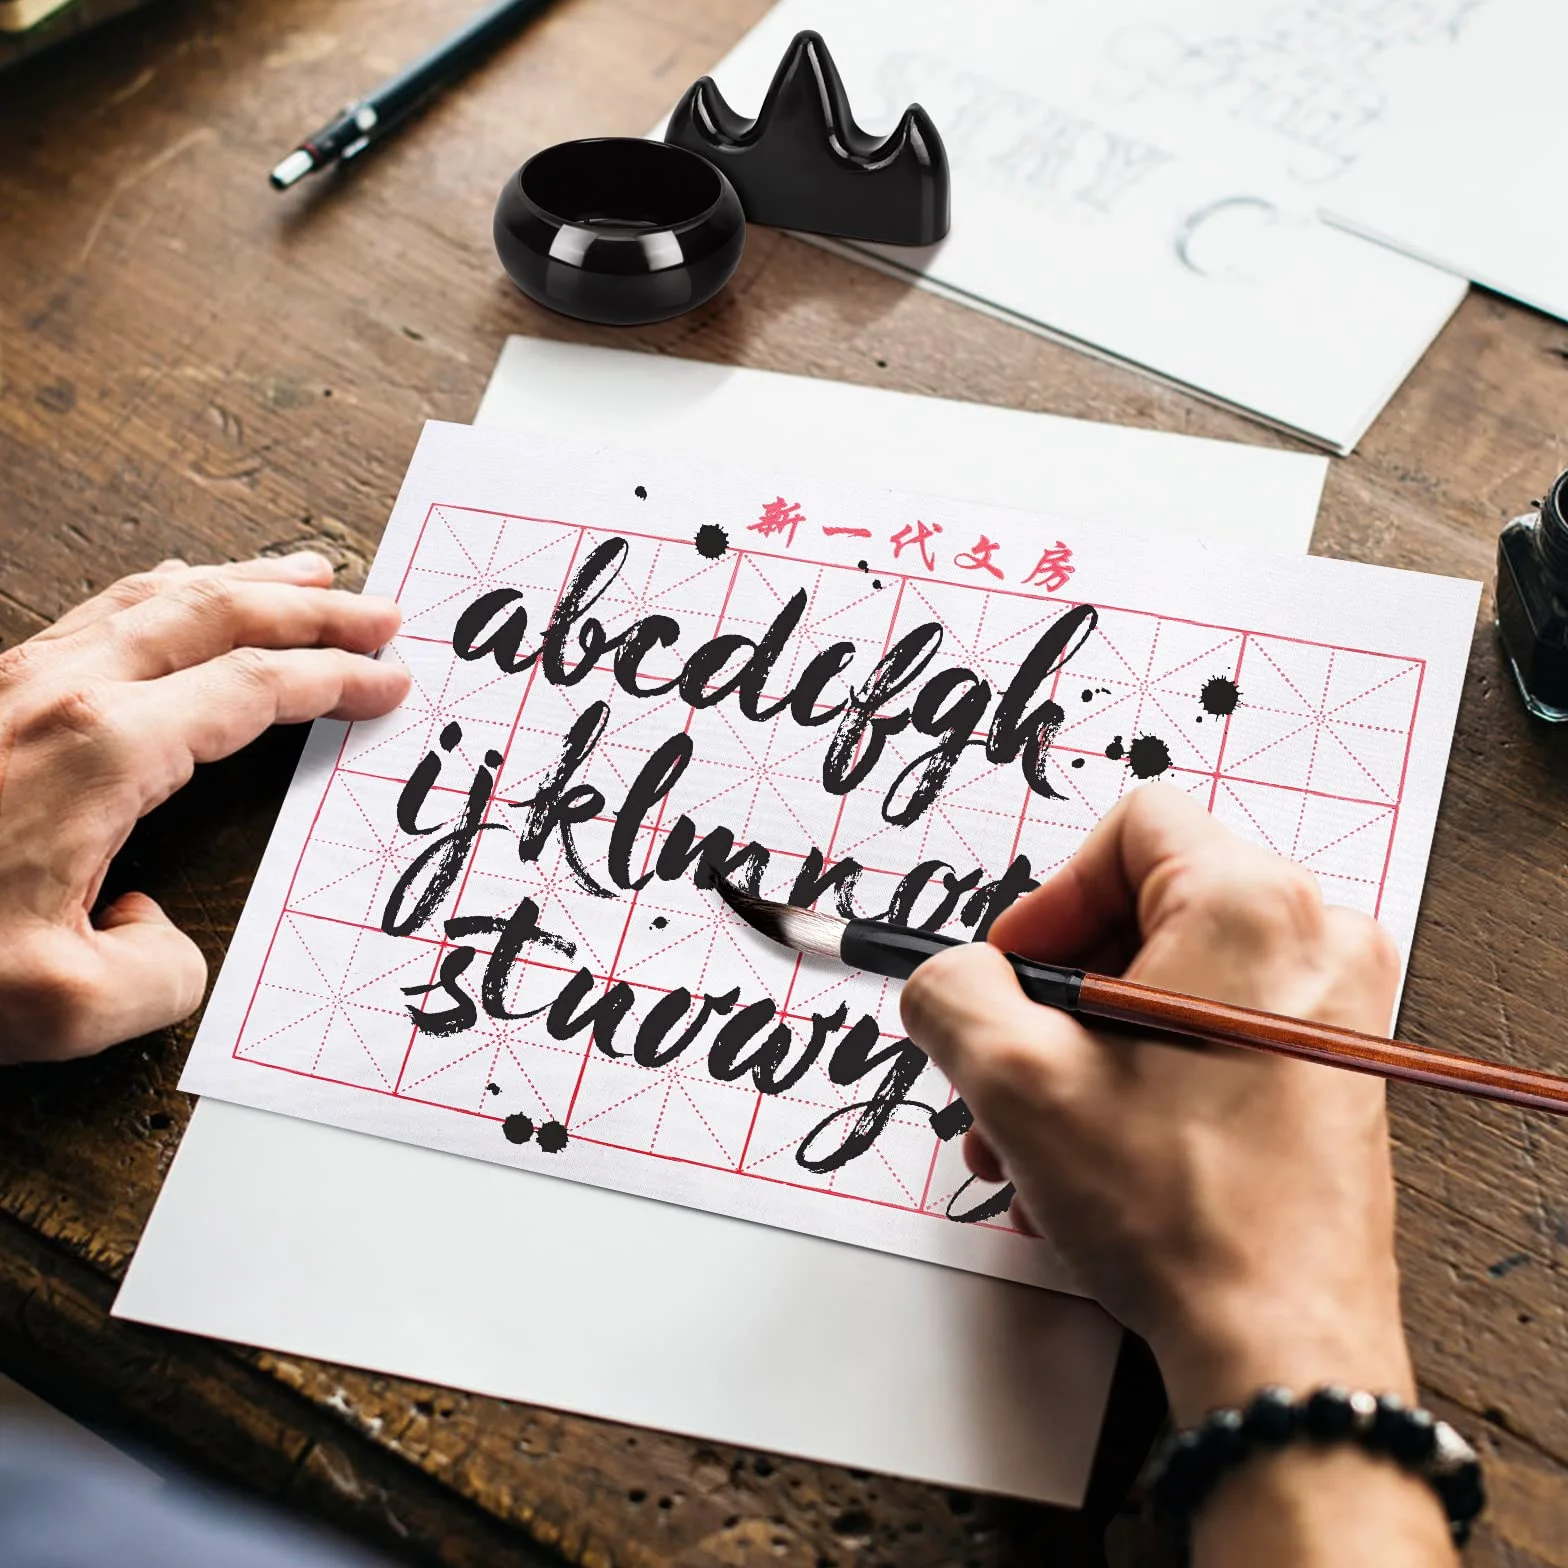 新一代文房
abcdefgh
ijklmno
stuvwy